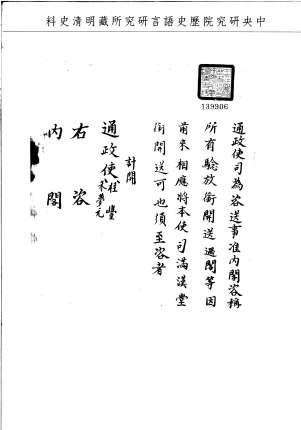 中央研究院歷史語言研究所藏明清史料
139906
通政使司為咨送事准內閣咨稱
所有驗放銜開送過閣等因
前來相應將本使司滿漢堂
銜開送可也須至咨者
計開
通政使桂豐
右咨
內閣